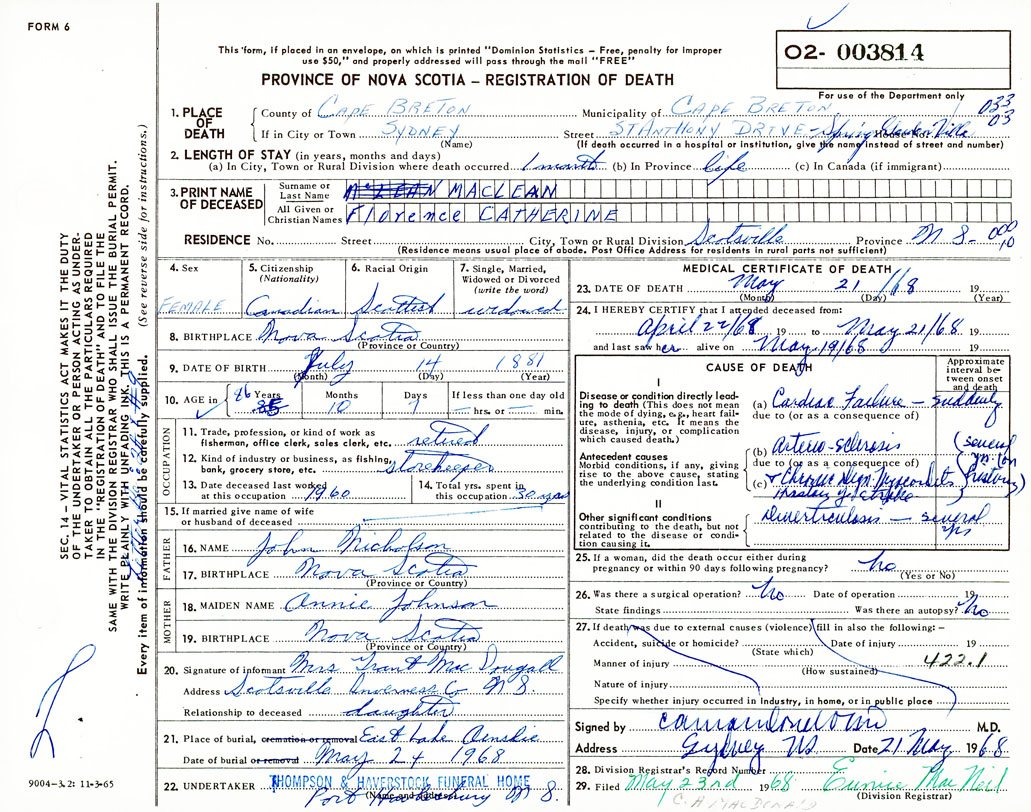 FORM 6
This form, if placed in an envelope, on which is printed "Dominion Statistics – Free, penalty for improper
use $50," and properly addressed will pass through the mail "FREE"
PROVINCE OF NOVA SCOTIA – REGISTRATION OF DEATH
02- 003814
For use of the Department only
033
03
1. PLACE OF DEATH
County of CAPE BRETON Municipality of CAPE BRETON
If in City or Town SYDNEY Street ST ANTHONY DRIVE
(Name) (If death occurred in a hospital or institution, give the name instead of street and number)
2. LENGTH OF STAY (in years, months and days)
(a) In City, Town or Rural Division where death occurred 1 month (b) In Province life (c) In Canada (if immigrant)
3. PRINT NAME OF DECEASED
Surname or Last Name McLEAN MACLEAN
All Given or Christian Names Florence CATHERINE
RESIDENCE No. Street City, Town or Rural Division Scotsville Province N S-
(Residence means usual place of abode. Post Office Address for residents in rural parts not sufficient)
4. Sex
FEMALE
5. Citizenship
(Nationality)
Canadian
6. Racial Origin
Scottish
7. Single, Married,
Widowed or Divorced
(write the word)
widowed
8. BIRTHPLACE Nova Scotia
(Province or Country)
9. DATE OF BIRTH July 14 1881
(Month) (Day) (Year)
10. AGE in 86 Years Months 10 Days 7 If less than one day old
hrs. or min.
OCCUPATION
11. Trade, profession, or kind of work as
fisherman, office clerk, sales clerk, etc. retired
12. Kind of industry or business, as fishing,
bank, grocery store, etc. storekeeper
13. Date deceased last worked
at this occupation 1960
14. Total yrs. spent in
this occupation 50 yrs
15. If married give name of wife
or husband of deceased
FATHER
16. NAME John Nicholson
17. BIRTHPLACE Nova Scotia
(Province or Country)
MOTHER
18. MAIDEN NAME Annie Johnson
19. BIRTHPLACE Nova Scotia
(Province or Country)
20. Signature of informant Mrs Grant MacDougall
Address Scotsville Inverness Co N S.
Relationship to deceased daughter
21. Place of burial, cremation or removal East Lake Ainslie
Date of burial or removal May 24 1968
22. UNDERTAKER THOMPSON & HAVERSTOCK FUNERAL HOME
(Name and address) Port Hawkesbury N S.
MEDICAL CERTIFICATE OF DEATH
23. DATE OF DEATH May 21 /68 19
(Month) (Day) (Year)
24. I HEREBY CERTIFY that I attended deceased from:
April 22/68 19 to May 21/68 19
and last saw her alive on May 19/68 19
CAUSE OF DEATH
Approximate interval between onset and death
I
Disease or condition directly leading to death (This does not mean the mode of dying, e.g., heart failure, asthenia, etc. It means the disease, injury, or complication which caused death.)
(a) Cardiac Failure – suddenly
due to (or as a consequence of)
Antecedent causes
Morbid conditions, if any, giving rise to the above cause, stating the underlying condition last.
(b) Arterio-sclerosis (several
due to (or as a consequence of)
(c) + Chronic
II
Other significant conditions
contributing to the death, but not related to the disease or condition causing it.
Diverticulosis – several
yrs
25. If a woman, did the death occur either during
pregnancy or within 90 days following pregnancy? No
(Yes or No)
26. Was there a surgical operation? No Date of operation 19
State findings Was there an autopsy? No
27. If death was due to external causes (violence) fill in also the following: –
Accident, suicide or homicide? Date of injury 19
(State which)
Manner of injury 422.1
(How sustained)
Nature of injury
Specify whether injury occurred in Industry, in home, or in public place
Signed by M.D.
Address Sydney NS Date 21 May 1968
28. Division Registrar's Record Number
29. Filed May 23rd 1968 Eunice MacNeil
(Division Registrar)
C. A MACDONALD
SEC. 14 – VITAL STATISTICS ACT MAKES IT THE DUTY
OF THE UNDERTAKER OR PERSON ACTING AS UNDERTAKER TO OBTAIN ALL THE PARTICULARS REQUIRED
IN THE "REGISTRATION OF DEATH" AND TO FILE THE
SAME WITH THE DIVISION REGISTRAR WHO SHALL ISSUE THE BURIAL PERMIT.
WRITE PLAINLY WITH UNFADING INK. THIS IS A PERMANENT RECORD.
Every item of information should be carefully supplied. (See reverse side for instructions.)
9004-3.2: 11-3-65